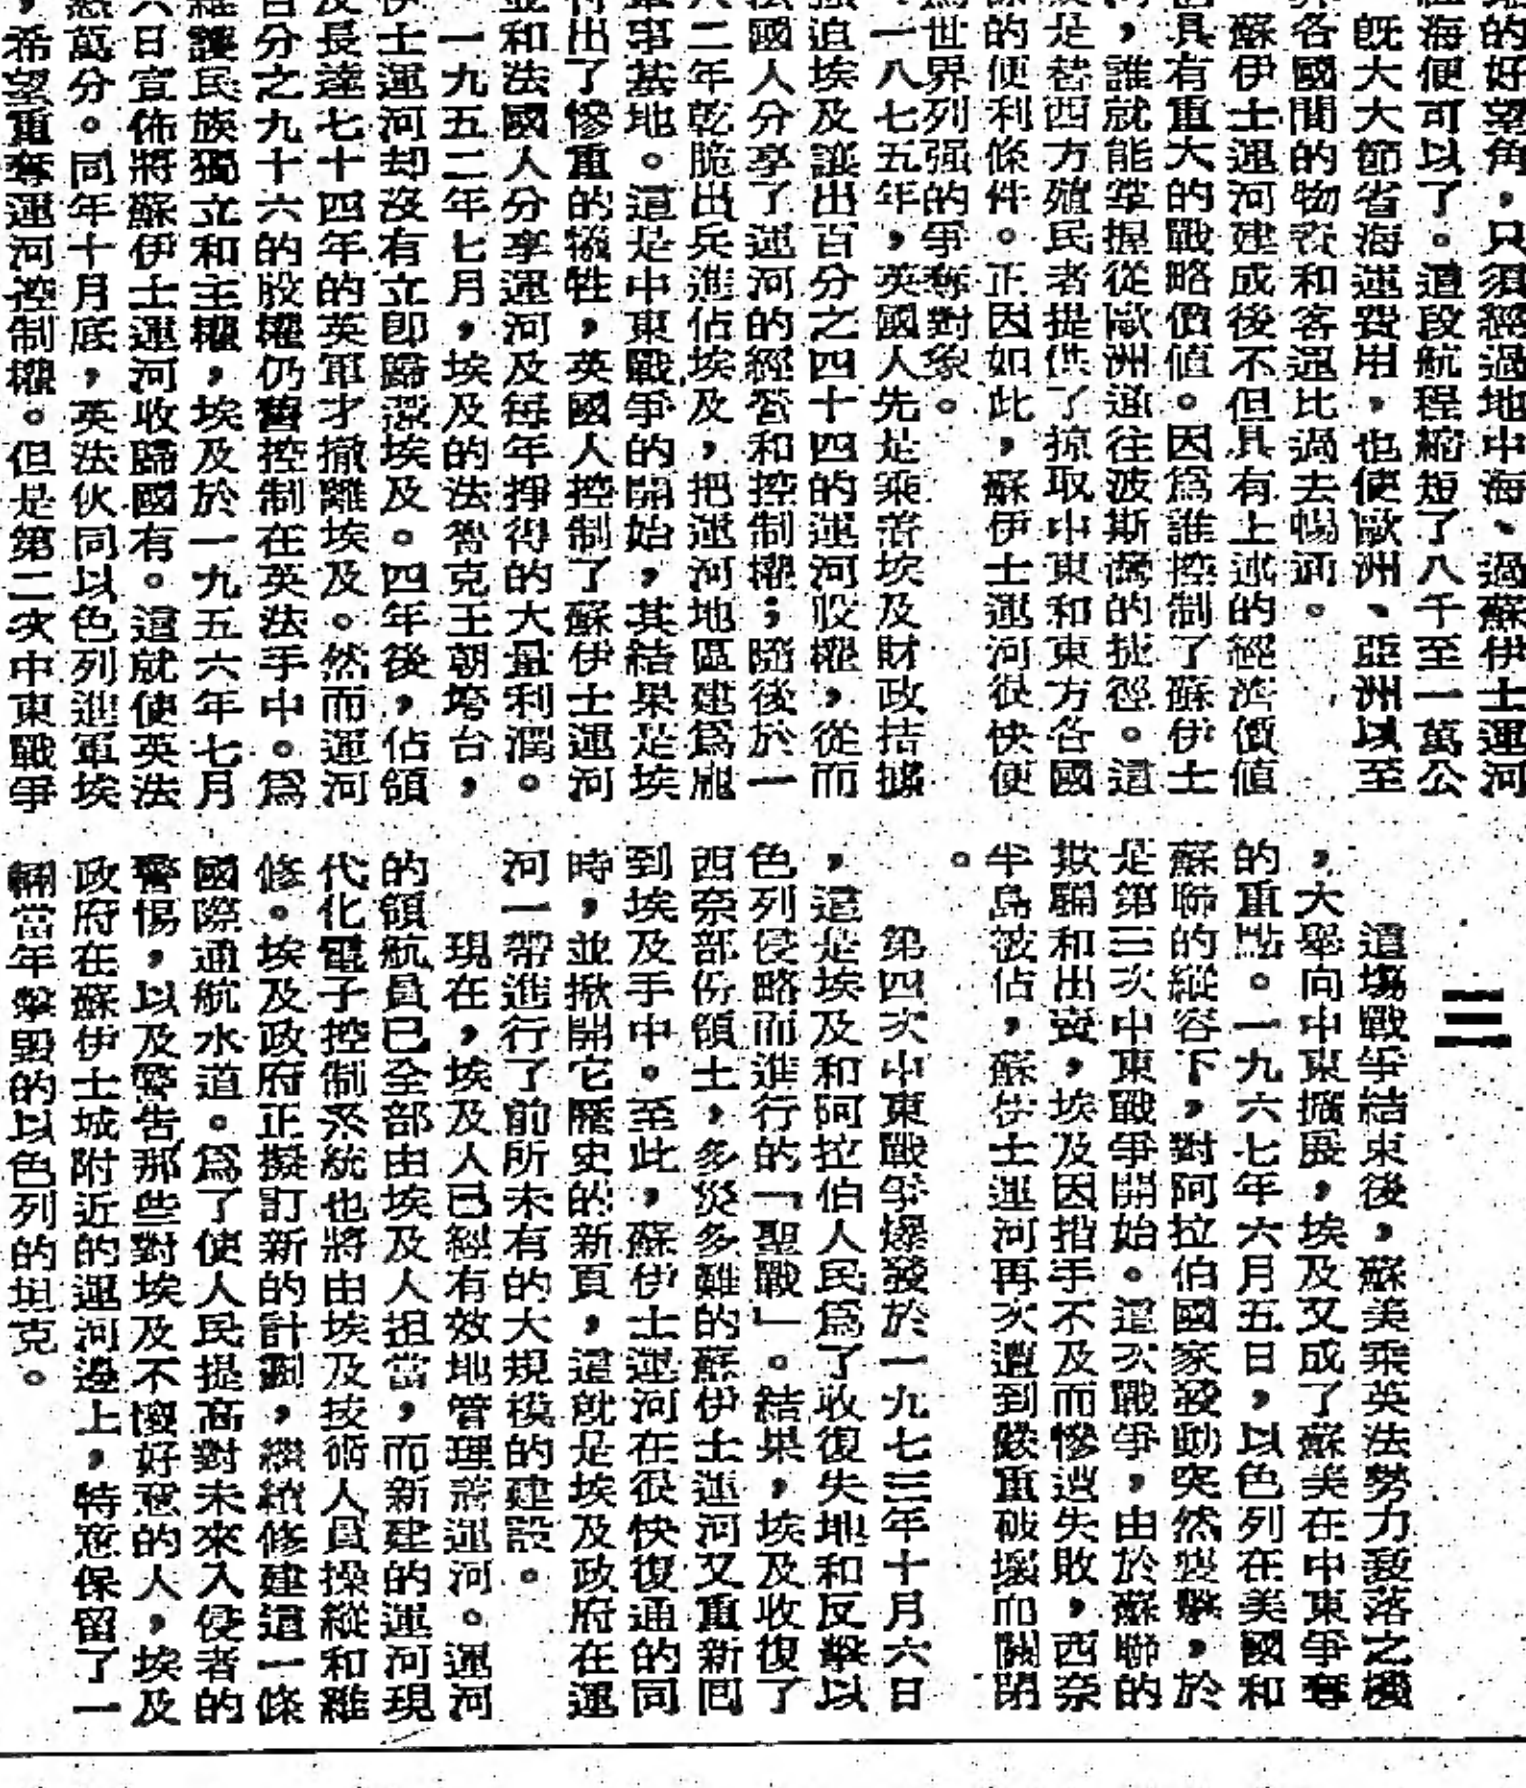 的好望角，只須經過地中海、過蘇伊士運河
海便可以了。這段航程縮短了八千至一萬公
既大大節省海運費用，也使歐洲、亞洲以至
各國間的物資和客運比過去暢通。
蘇伊士運河建成後不但具有上述的經濟價值
具有重大的戰略價值。因爲誰控制了蘇伊士
，誰就能掌握從歐洲通往波斯灣的捷徑。這
是替西方殖民者提供了掠取中東和東方各國
的便利條件。正因如此，蘇伊士運河很快便
世界列强的爭奪對象。
一八七五年，英國人先是乘着埃及財政拮據
迫埃及讓出百分之四十四的運河股權，從而
國人分享了運河的經營和控制權；隨後於一
二年乾脆出兵進佔埃及，把運河地區建爲龐
事基地。這是中東戰爭的開始，其結果是埃
出了慘重的犧牲，英國人控制了蘇伊士運河
和法國人分享運河及每年掙得的大量利潤。
一九五二年七月，埃及的法魯克王朝垮台，
士運河却沒有立卽歸還埃及。四年後，佔領
長達七十四年的英軍才撤離埃及。然而運河
百分之九十六的股權仍舊控制在英法手中。爲
護民族獨立和主權，埃及於一九五六年七月
六日宣佈將蘇伊士運河收歸國有。這就使英法
萬分。同年十月底，英法伙同以色列進軍埃
，希望重奪運河控制權。但是第二次中東戰爭
三
這場戰爭結束後，蘇美乘英法勢力衰落之機
，大舉向中東擴展，埃及又成了蘇美在中東爭奪
的重點。一九六七年六月五日，以色列在美國和
蘇聯的縱容下，對阿拉伯國家發動突然襲擊，於
是第三次中東戰爭開始。這次戰爭，由於蘇聯的
欺騙和出賣，埃及因措手不及而慘遭失敗，西奈
半島被佔，蘇伊士運河再次遭到嚴重破壞而關閉
。
第四次中東戰爭爆發於一九七三年十月六日
，這是埃及和阿拉伯人民爲了收復失地和反擊以
色列侵略而進行的「聖戰」。結果，埃及收復了
西奈部份領土，多災多難的蘇伊士運河又重新回
到埃及手中。至此，蘇伊士運河在很快復通的同
時，並揿開它歷史的新頁，這就是埃及政府在運
河一帶進行了前所未有的大規模的建設。
現在，埃及人已經有效地管理着運河。運河
的領航員已全部由埃及人担當，而新建的運河現
代化電子控制系統也將由埃及技術人員操縱和維
修。埃及政府正擬訂新的計劃，繼續修建這一條
國際通航水道。爲了使人民提高對未來入侵者的
警惕，以及警告那些對埃及不懷好意的人，埃及
政府在蘇伊士城附近的運河邊上，特意保留了一
輛當年擊毀的以色列的坦克。